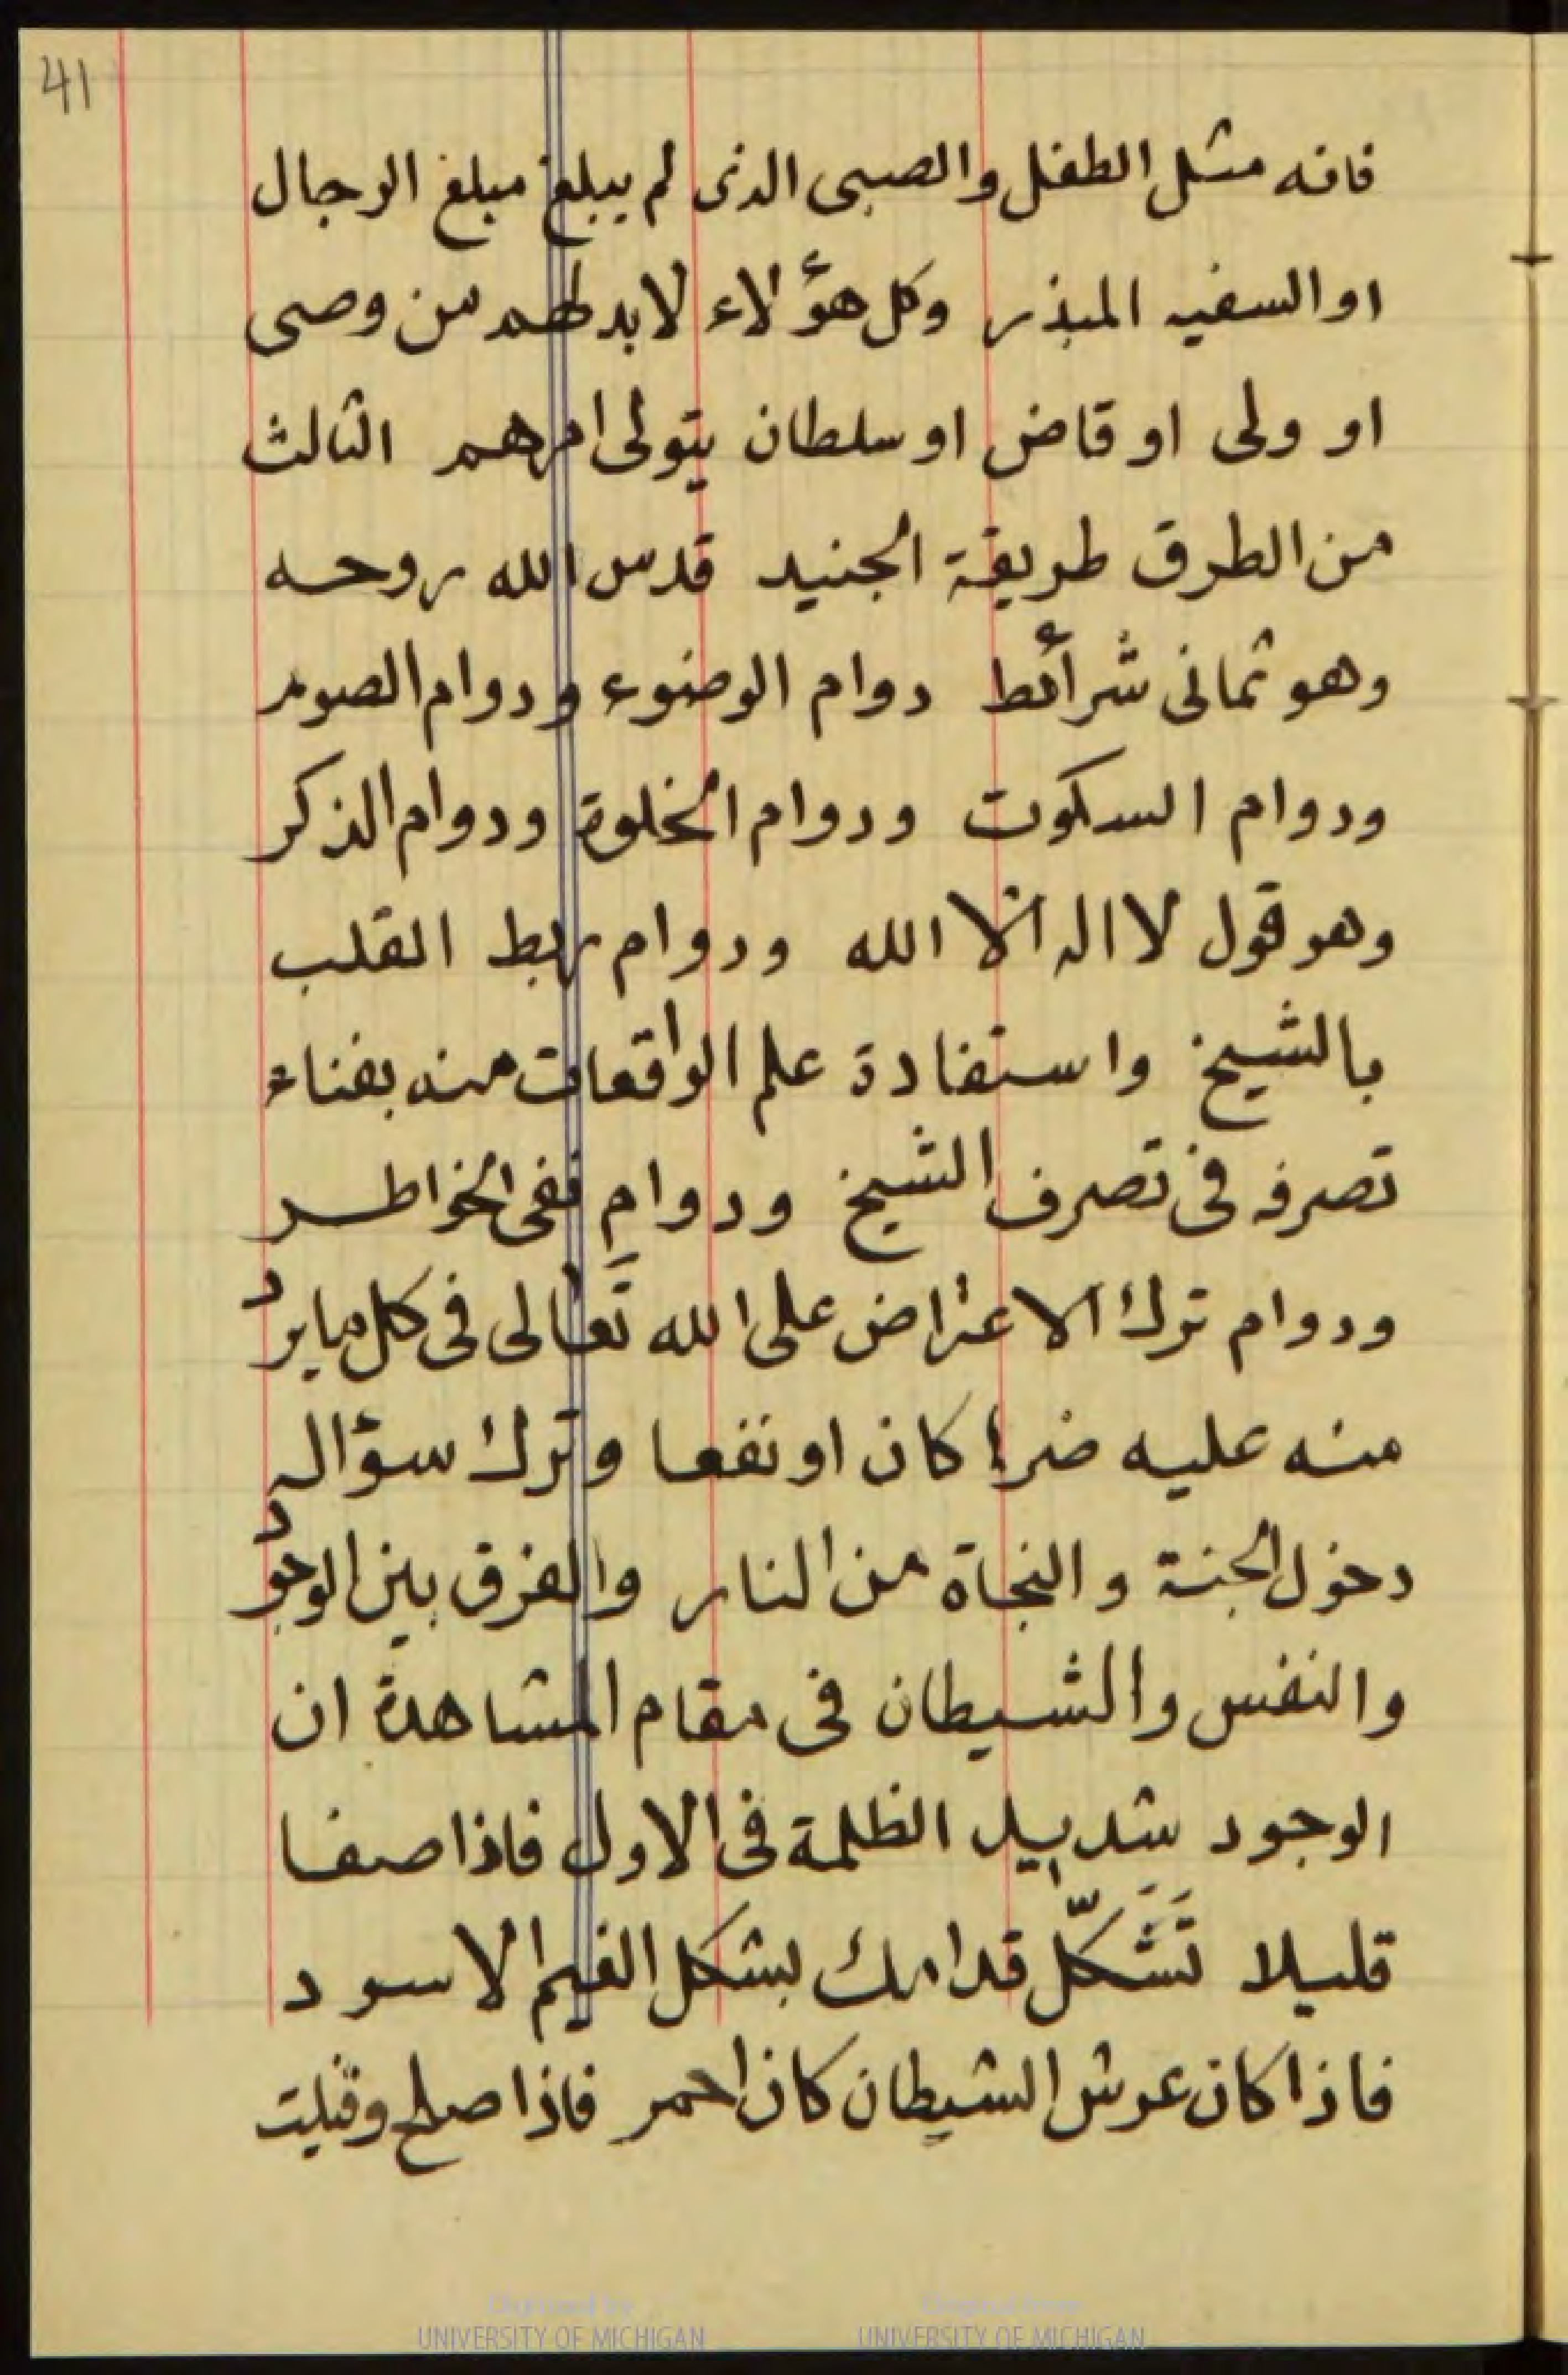 41
فانه مثل الطفل والصبى الذى لم يبلغ مبلغ الرجال
او السفيه المبذر وكل هؤلاء لابد لهم من وصى
او ولى او قاض او سلطان يتولى امرهم الثالث
من الطرق طريقة الجنيد قدس الله روحه
وهو ثمانى شرائط دوام الوضوء ودوام الصوم
ودوام السكوت ودوام الخلوة ودوام الذكر
وهو قول لا اله الا الله ودوام ربط القلب
بالشيخ واستفادة علم الواقعات منه بفناء
تصرفه فى تصرف الشيخ ودوام نفى الخواطر
ودوام ترك الاعتراض على الله تعالى فى كل ما يرد
منه عليه ضرا كان او نفعا وترك سؤال
دخول الجنة والنجاة من النار والفرق بين الوجود
والنفس والشيطان فى مقام المشاهدة ان
الوجود شديد الظلمة فى الاول فاذا صفا
قليلا تَشَكّل قدامك بشكل الغيم الاسود
فاذا كان عرش الشيطان كان احمر فاذا صلح وفنيت
Digitized by
UNIVERSITY OF MICHIGAN
Original from
UNIVERSITY OF MICHIGAN